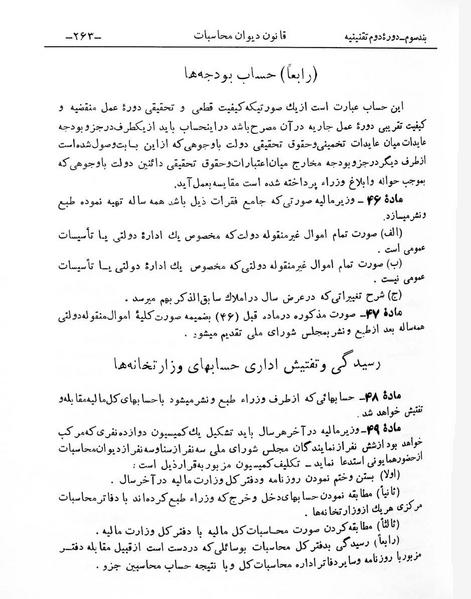 بند سوم ـ دورهٔ دوم تقنینیه قانون دیوان محاسبات ـ۲۶۳ـ
(رابعاً) حساب بودجه‌ها
این حساب عبارت است از یك صورتیکه کیفیت قطعی و تحقیقی دورهٔ عمل منقضیه و
کیفیت تقریبی دورهٔ عمل جاریه در آن مصرح باشد در اینحساب باید از یکطرف در جزو بودجه
عایدات میان عایدات تخمینی وحقوق تحقیقی دولت باوجوهی که از این بابت وصول شده است
ازطرف دیگر درجزو بودجه مخارج میان اعتبارات وحقوق تحقیقی دائنین دولت باوجوهی که
بموجب حواله وابلاغ وزراء پرداخته شده است مقایسه بعمل آید.
مادهٔ ۴۶ ـ وزیر مالیه صورتی که جامع فقرات ذیل باشد همه ساله تهیه نموده طبع
ونشر میسازد.
(الف) صورت تمام اموال غیرمنقوله دولتی که مخصوص یك ادارهٔ دولتی یا تأسیسات
عمومی است .
(ب) صورت تمام اموال غیرمنقوله دولتی که مخصوص یك ادارهٔ دولتی یا تأسیسات
عمومی نیست .
(ج) شرح تغییراتی که در عرض سال در املاك سابق الذکر بهم میرسد .
مادهٔ ۴۷ ـ صورت مذکوره در ماده قبل (۴۶) بضمیمه صورت کلیهٔ اموال منقوله دولتی
همه ساله بعد از طبع و نشر بمجلس شورای ملی تقدیم میشود .
رسیدگی و تفتیش اداری حسابهای وزارتخانه‌ها
مادهٔ ۴۸ ـ حسابهائی که ازطرف وزراء طبع و نشر میشود با حسابهای کل مالیه مقابله و
تفتیش خواهد شد.
مادهٔ ۴۹ ـ وزیر مالیه در آخر هر سال باید تشکیل یك کمیسیون دوازده نفری که مرکب
خواهد بود از شش نفر از نمایندگان مجلس شورای ملی سه نفر از سنا و سه نفر از دیوان محاسبات
از حضور همایونی استدعا نماید ـ تکلیف کمیسیون مزبور به قرار ذیل است :
(اولا) بستن وختم نمودن روزنامه ودفتر کل وزارت مالیه در آخر سال .
(ثانیاً) مطابقه نمودن حسابهای دخل وخرج که وزراء طبع کرده‌اند با دفاتر محاسبات
مرکزی هریك از وزارتخانه‌ها .
(ثالثاً) مطابقه کردن صورت محاسبات کل مالیه با دفتر کل وزارت مالیه .
(رابعاً) رسیدگی بدفتر کل محاسبات بوسائلی که در دست است از قبیل مقابله دفتر
مزبور با روزنامه وسایر دفاتر اداره محاسبات کل و با نتیجه حساب محاسبین جزو .